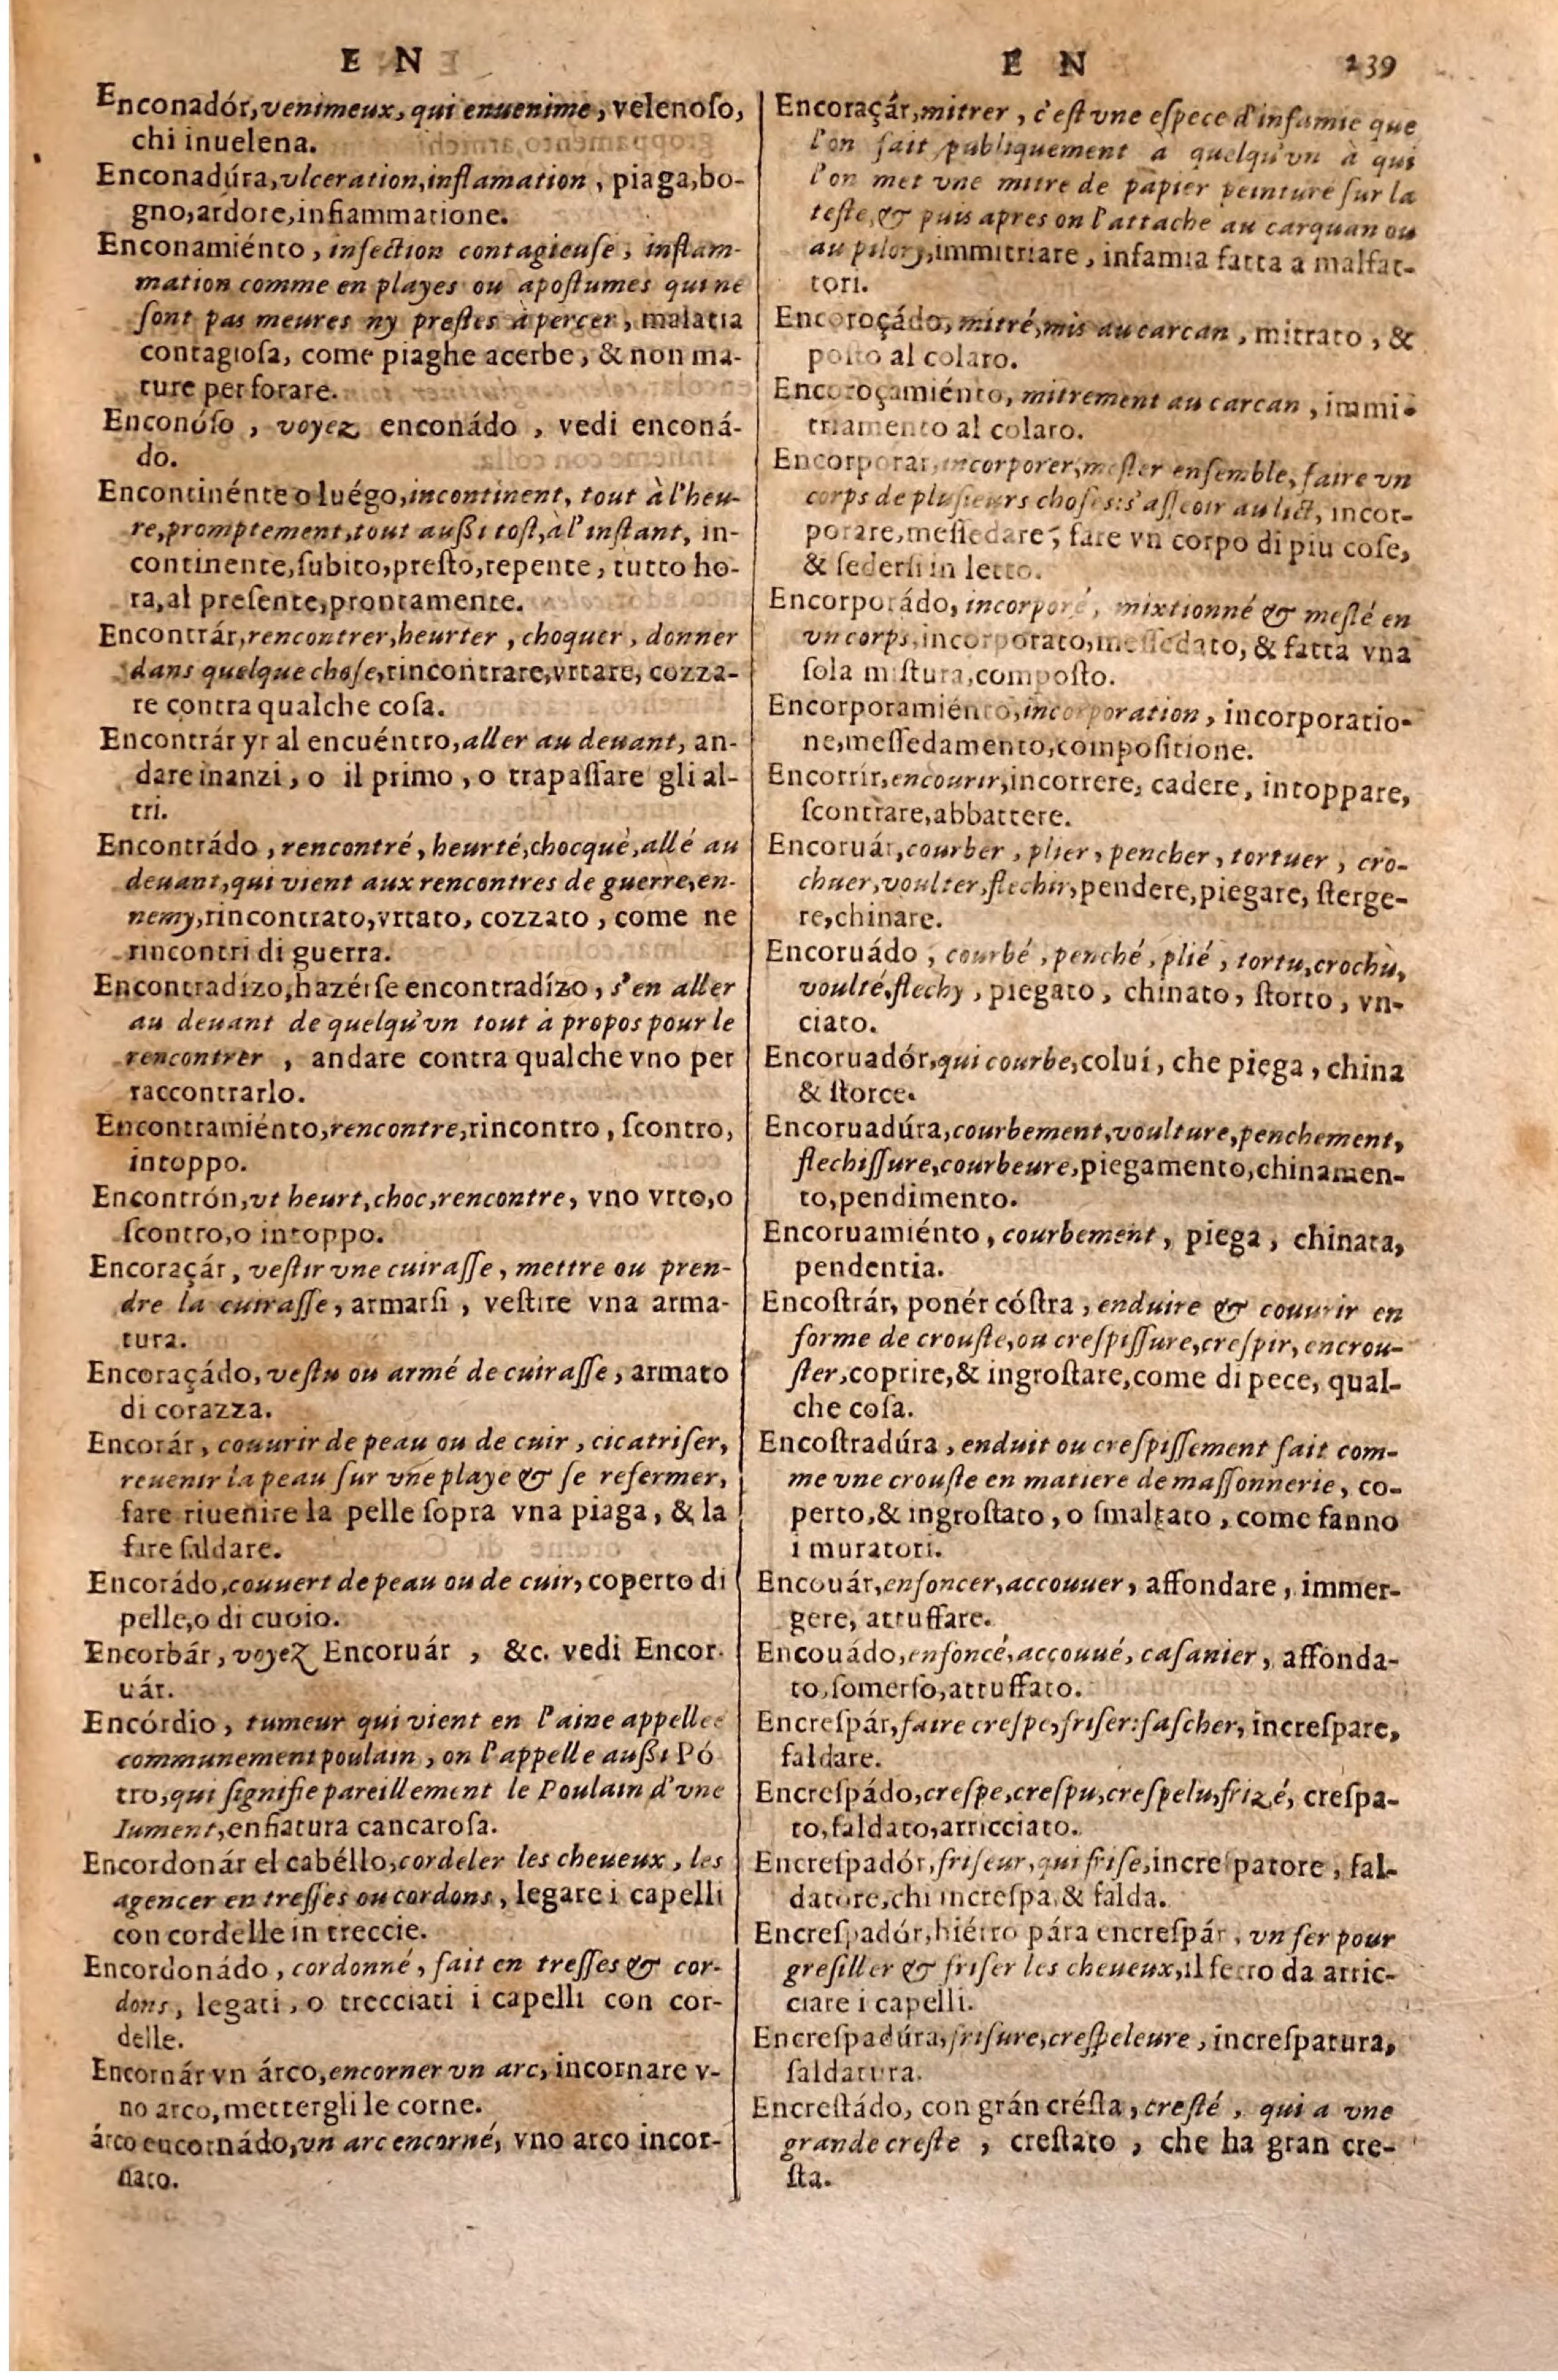 E N
Enconadór, venimeux, qui enuenime, velenoſo,
chi inuelena.
Enconadúra, vlceration, inflamation, piaga, bo-
gno, ardore, infiammatione.
Enconamiénto, infection contagieuſe, inflam-
mation comme en playes ou apoſtumes qui ne
ſont pas meures ny preſtes à percer, malatia
contagioſa, come piaghe acerbe, & non ma-
ture per forare.
Enconóſo, voyez enconádo, vedi enconá-
do.
Encontinénte o luégo, incontinent, tout à l'heu-
re, promptement, tout außi toſt, à l'inſtant, in-
continente, ſubito, preſto, repente, tutto ho-
ra, al preſente, prontamente.
Encontrár, rencontrer, heurter, choquer, donner
dans quelque choſe, rincontrare, vrtare, cozza-
re contra qualche coſa.
Encontrár yr al encuéntro, aller au deuant, an-
dare inanzi, o il primo, o trapaſſare gli al-
tri.
Encontrádo, rencontré, heurté, chocquè, allé au
deuant, qui vient aux rencontres de guerre, en-
nemy, rincontrato, vrtato, cozzato, come ne
rincontri di guerra.
Encontradizo, hazérſe encontradízo, s'en aller
au deuant de quelqu'vn tout à propos pour le
rencontrer, andare contra qualche vno per
raccontrarlo.
Encontramiénto, rencontre, rincontro, ſcontro,
intoppo.
Encontrón, vt heurt, choc, rencontre, vno vrto, o
ſcontro, o intoppo.
Encoraçár, veſtir vne cuiraſſe, mettre ou pren-
dre la cuiraſſe, armarſi, veſtire vna arma-
tura.
Encoraçádo, veſtu ou armé de cuiraſſe, armato
di corazza.
Encorár, couurir de peau ou de cuir, cicatriſer,
reuenir la peau ſur vne playe & ſe refermer,
fare riuenire la pelle ſopra vna piaga, & la
fare ſaldare.
Encorádo, couuert de peau ou de cuir, coperto di
pelle, o di cuoio.
Encorbár, voyez Encoruár, &c. vedi Encor-
uár.
Encórdio, tumeur qui vient en l'aine appellee
communement poulain, on l'appelle außi Pó
tro, qui ſignifie pareillement le Poulain d'vne
Iument, enfiatura cancaroſa.
Encordonár el cabéllo, cordeler les cheueux, les
agencer en treſſes ou cordons, legare i capelli
con cordelle in treccie.
Encordonádo, cordonné, fait en treſſes & cor-
dons, legati, o trecciati i capelli con cor-
delle.
Encornár vn árco, encorner vn arc, incornare v-
no arco, mettergli le corne.
árco encornádo, vn arc encorné, vno arco incor-
nato.
E N 239
Encoraçár, mitrer, c'eſt vne eſpece d'infamie que
l'on fait publiquement a quelqu'vn à qui
l'on met vne mitre de papier peinturé ſur la
teſte, & puis apres on l'attache au carquan ou
au pilory, immitriare, infamia fatta a malfat-
tori.
Encoroçádo, mitré, mis au carcan, mitrato, &
poſto al colaro.
Encoroçamiénto, mitrement au carcan, immi-
triamento al colaro.
Encorporar, incorporer, meſler enſemble, faire vn
corps de pluſieurs choſes: s'aſſeoir au lict, incor-
porare, meſſedare, fare vn corpo di piu coſe,
& ſederſi in letto.
Encorporádo, incorporé, mixtionné & meſlé en
vn corps, incorporato, meſſedato, & fatta vna
ſola miſtura, compoſto.
Encorporamiénto, incorporation, incorporatio-
ne, meſſedamento, compoſitione.
Encorrír, encourir, incorrere, cadere, intoppare,
ſcontrare, abbattere.
Encoruár, courber, plier, pencher, tortuer, cro-
chuer, voulter, flechir, pendere, piegare, ſterge-
re, chinare.
Encoruádo, courbé, penché, plié, tortu, crochù,
voulté, flechy, piegato, chinato, ſtorto, vn-
ciato.
Encoruadór, qui courbe, colui, che piega, china
& ſtorce.
Encoruadúra, courbement, voulture, penchement,
flechiſſure, courbeure, piegamento, chinamen-
to, pendimento.
Encoruamiénto, courbement, piega, chinata,
pendentia.
Encoſtrár, ponér cóſtra, enduire & couurir en
forme de crouſte, ou creſpiſſure, creſpir, encrou-
ſter, coprire, & ingroſtare, come di pece, qual-
che coſa.
Encoſtradúra, enduit ou creſpiſſement fait com-
me vne crouſte en matiere de maſſonnerie, co-
perto, & ingroſtato, o ſmaltato, come fanno
i muratori.
Encouár, enfoncer, accouuer, affondare, immer-
gere, attuffare.
Encouádo, enfoncé, accouué, caſanier, affonda-
to, ſomerſo, attuffato.
Encreſpár, faire creſpe, friſer: faſcher, increſpare,
faldare.
Encreſpádo, creſpe, creſpu, creſpelu, frizé, creſpa-
to, faldato, arricciato.
Encreſpadór, friſeur, qui friſe, increſpatore, fal-
datore, chi increſpa, & falda.
Encreſpadór, hiérro pára encreſpár, vn fer pour
greſiller & friſer les cheueux, il ferro da arric-
ciare i capelli.
Encreſpadúra, friſure, creſpeleure, increſpatura,
faldatura.
Encreſtádo, con grán créſta, creſté, qui a vne
grande creſte, creſtato, che ha gran cre-
ſta.